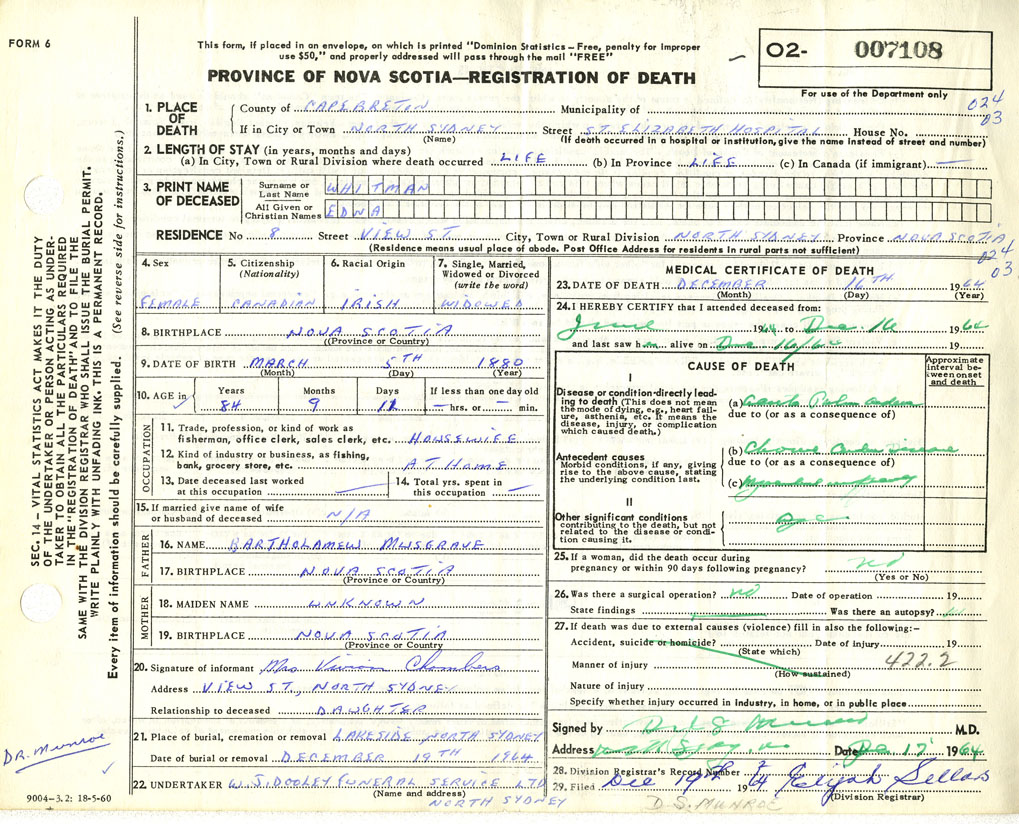 FORM 6
This form, if placed in an envelope, on which is printed "Dominion Statistics – Free, penalty for improper
use $50," and properly addressed will pass through the mail "FREE"
PROVINCE OF NOVA SCOTIA—REGISTRATION OF DEATH
O2- 007108
For use of the Department only
024
03
1. PLACE OF DEATH
County of CAPE BRETON Municipality of
If in City or Town NORTH SYDNEY Street ST. ELIZABETH HOSPITAL House No.
(Name) (If death occurred in a hospital or institution, give the name instead of street and number)
2. LENGTH OF STAY (in years, months and days)
(a) In City, Town or Rural Division where death occurred LIFE (b) In Province LIFE (c) In Canada (if immigrant) —
3. PRINT NAME OF DECEASED
Surname or Last Name WHITMAN
All Given or Christian Names EDNA
RESIDENCE No 8 Street VIEW ST. City, Town or Rural Division NORTH SYDNEY Province NOVA SCOTIA
(Residence means usual place of abode. Post Office Address for residents in rural parts not sufficient)
024
03
4. Sex FEMALE
5. Citizenship (Nationality) CANADIAN
6. Racial Origin IRISH
7. Single, Married, Widowed or Divorced (write the word) WIDOWED
8. BIRTHPLACE NOVA SCOTIA
(Province or Country)
9. DATE OF BIRTH MARCH 5TH 1880
(Month) (Day) (Year)
10. AGE in Years 84 Months 9 Days 11 If less than one day old — hrs. or — min.
OCCUPATION
11. Trade, profession, or kind of work as
fisherman, office clerk, sales clerk, etc. HOUSEWIFE
12. Kind of industry or business, as fishing,
bank, grocery store, etc. AT HOME
13. Date deceased last worked
at this occupation —
14. Total yrs. spent in
this occupation —
15. If married give name of wife
or husband of deceased N/A
FATHER
16. NAME BARTHOLAMEW MUSGRAVE
17. BIRTHPLACE NOVA SCOTIA
(Province or Country)
MOTHER
18. MAIDEN NAME UNKNOWN
19. BIRTHPLACE NOVA SCOTIA
(Province or Country)
20. Signature of informant Mrs Chambers
Address VIEW ST., NORTH SYDNEY
Relationship to deceased DAUGHTER
21. Place of burial, cremation or removal LAKESIDE NORTH SYDNEY
Date of burial or removal DECEMBER 19TH 1964
22. UNDERTAKER W. J. DOOLEY FUNERAL SERVICE LTD
(Name and address)
NORTH SYDNEY
MEDICAL CERTIFICATE OF DEATH
23. DATE OF DEATH DECEMBER 16TH 1964
(Month) (Day) (Year)
24. I HEREBY CERTIFY that I attended deceased from:
June 1964 to Dec. 16 1964
and last saw her alive on Dec 16/64 19
CAUSE OF DEATH
Approximate interval between onset and death
I
Disease or condition directly leading to death (This does not mean the mode of dying, e.g., heart failure, asthenia, etc. It means the disease, injury, or complication which caused death.)
(a)
due to (or as a consequence of)
Antecedent causes
Morbid conditions, if any, giving rise to the above cause, stating the underlying condition last.
(b) Disease
due to (or as a consequence of)
(c)
II
Other significant conditions
contributing to the death, but not related to the disease or condition causing it.
25. If a woman, did the death occur during
pregnancy or within 90 days following pregnancy? no
(Yes or No)
26. Was there a surgical operation? no Date of operation 19
State findings Was there an autopsy?
27. If death was due to external causes (violence) fill in also the following:–
Accident, suicide or homicide? Date of injury 19
(State which)
Manner of injury 422.2
(How sustained)
Nature of injury
Specify whether injury occurred in industry, in home, or in public place
Signed by M.D.
Address Date Dec 17 1964
28. Division Registrar's Record Number
29. Filed Dec 19th 1964 Elijah Sellars
(Division Registrar)
D. S. MUNROE
SEC. 14 – VITAL STATISTICS ACT MAKES IT THE DUTY
OF THE UNDERTAKER OR PERSON ACTING AS UNDER-
TAKER TO OBTAIN ALL THE PARTICULARS REQUIRED
IN THE "REGISTRATION OF DEATH" AND TO FILE THE
SAME WITH THE DIVISION REGISTRAR WHO SHALL ISSUE THE BURIAL PERMIT.
WRITE PLAINLY WITH UNFADING INK. THIS IS A PERMANENT RECORD.
Every item of information should be carefully supplied. (See reverse side for instructions.)
DR. Munroe
9004–3.2: 18-5-60